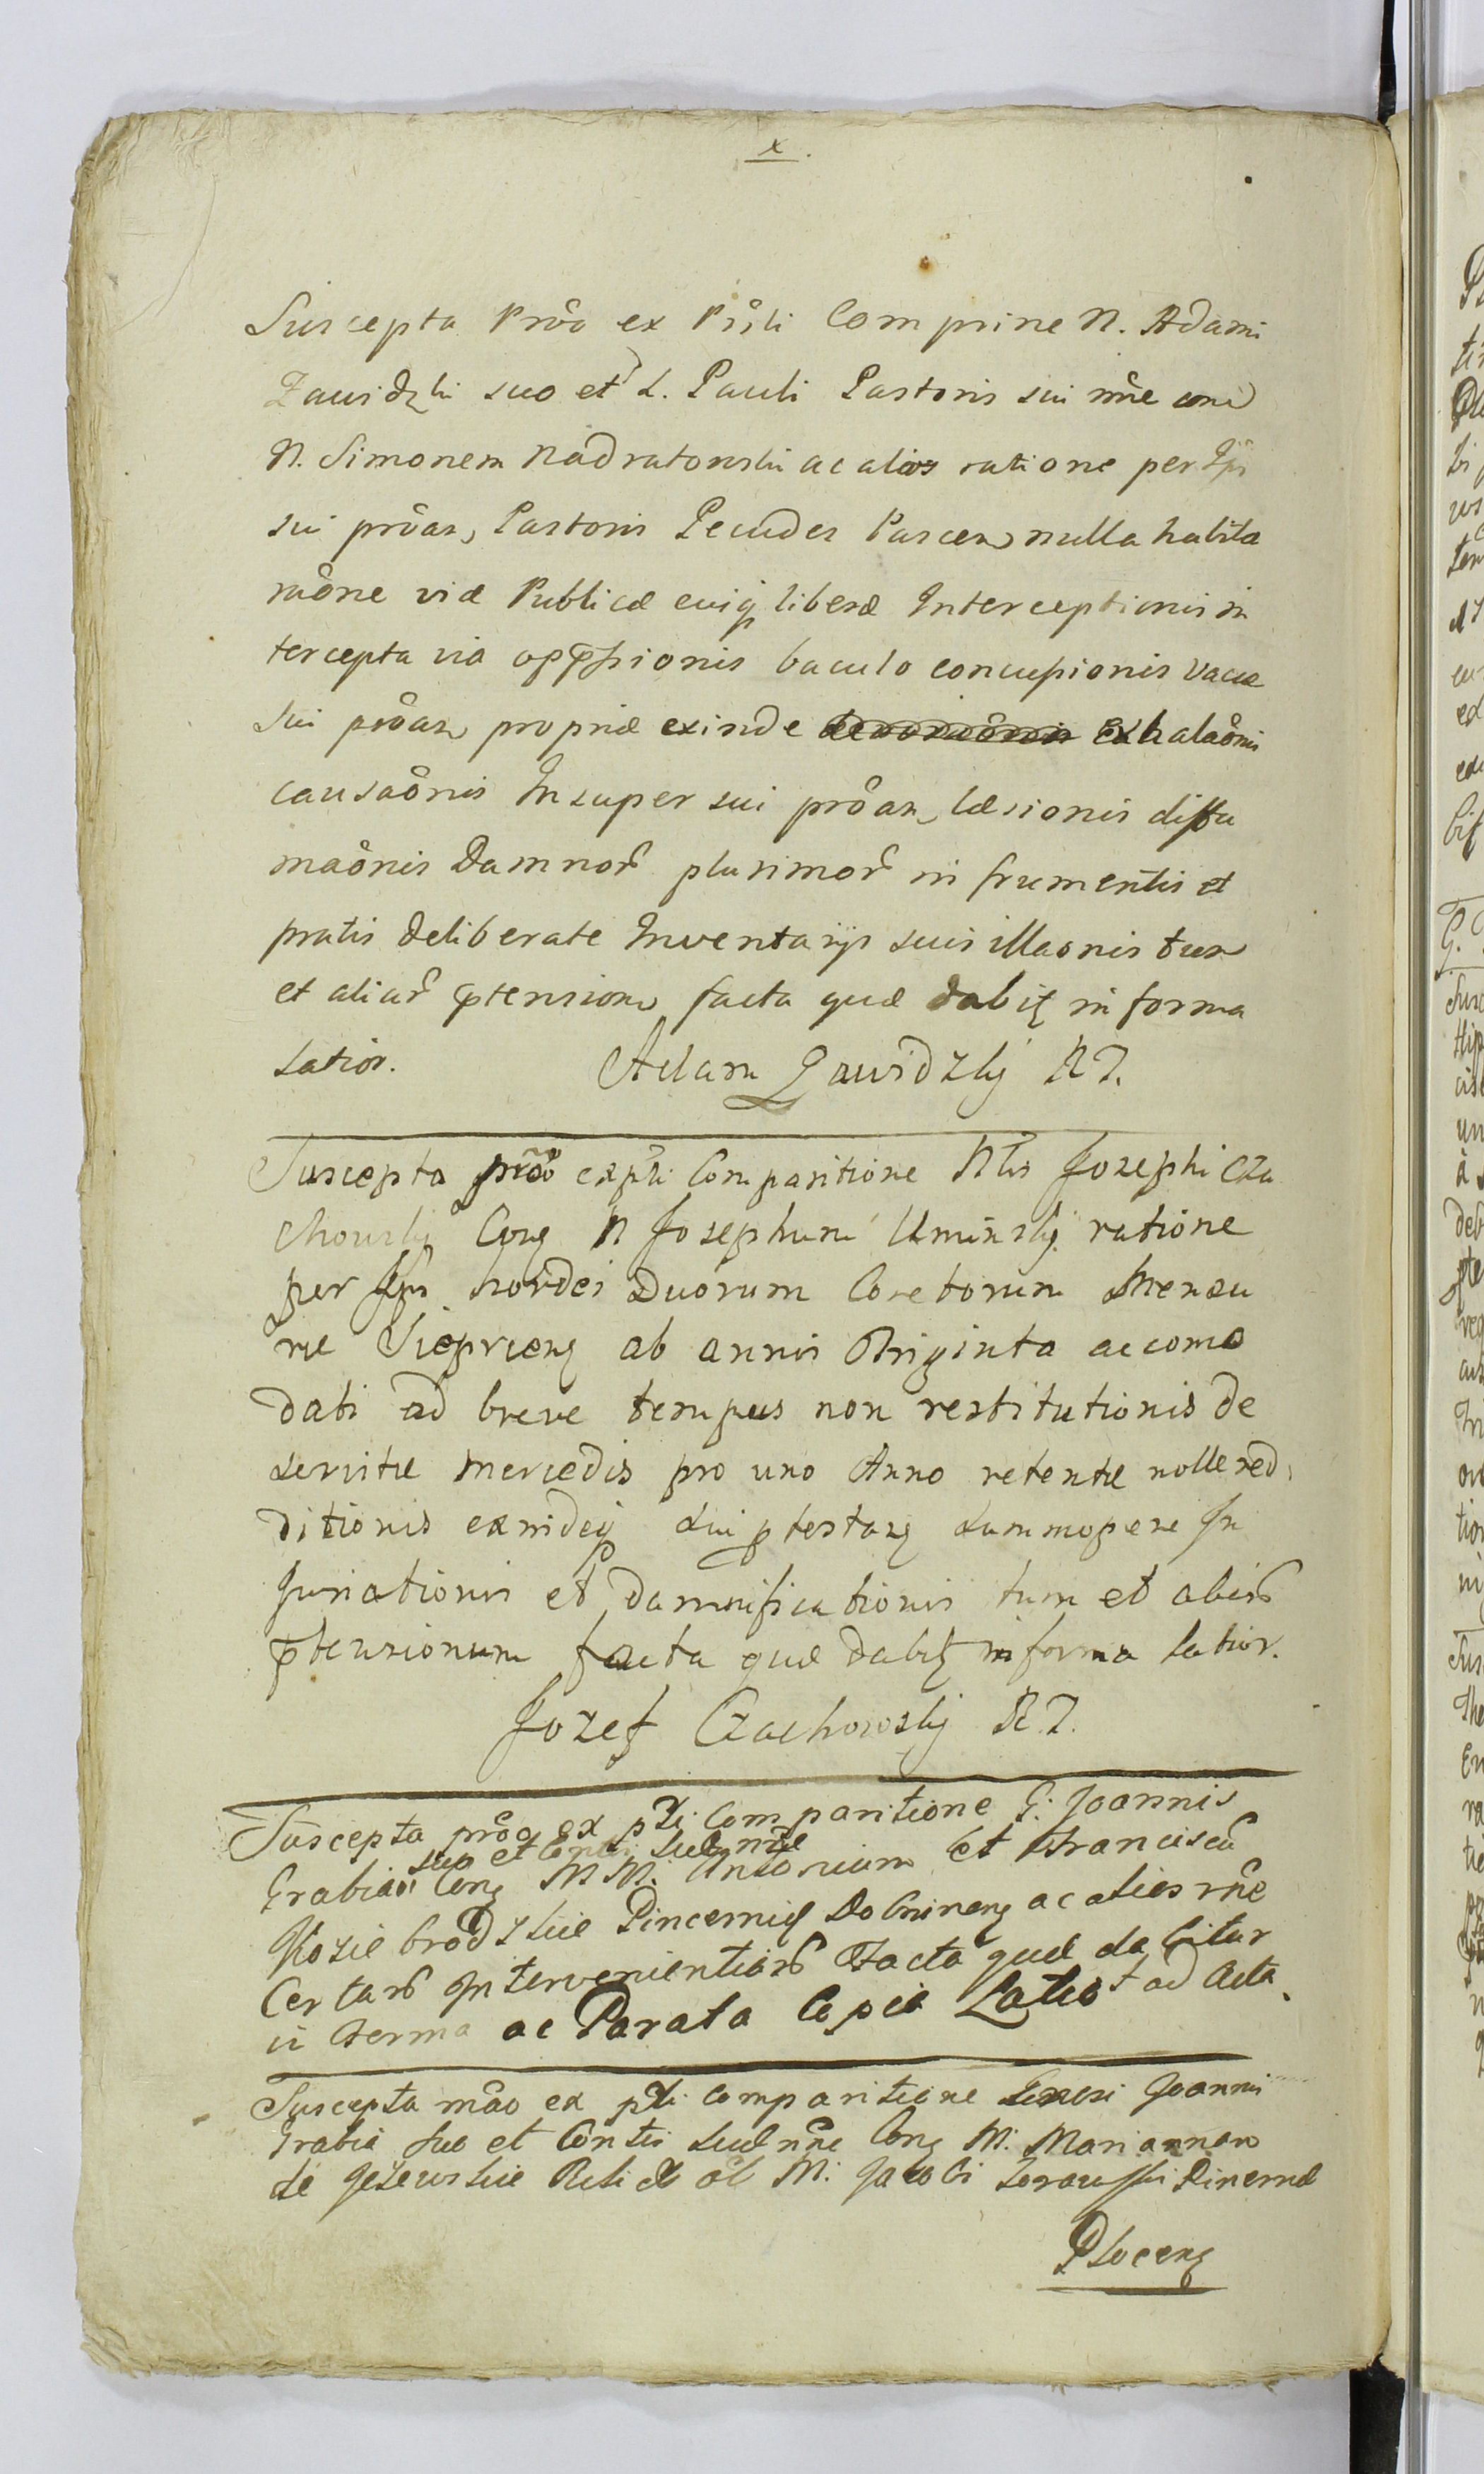 x.
Suscepta Prôa ex Pńti Comprine N. Adami
Zawidzki suo et L. Pauli Pastoris sui nńe con
N. Simonem Nadratowski ac alios ratione per Ipŝ
sui prôan, Pastoris Pecudes Pascen, nulla habita
raône viæ Publicæ cuiq liberæ Interceptionis in
tercepta via oppssionis baculo concussionis vacca
sui prôan, propriæ exinde exhalaônis
causaônis Insuper sui prôan, læsionis diffa
maônis Damnor plurimor in frumentis et
pratis deliberate Inventarijs suis illaonis tum
et aliar ptension, facta quæ dabit in forma
latior. Adam Zawidzkij R T.
Suscepta prôo ex pńti Comparitione Nlis Josephi Cza
chowskij Cong N Josephum Uminskij ratione
per Ipŝ hordei Duorum Coretorum Mensu
ræ Sieprceng ab annis Triginta accomo
dati ad breve tempus non restitutionis de
servitæ mercedis pro uno Anno retentæ nolle red
ditionis exindeq sui ptestang summopere In
juriationis et damnificationis tum et aliar
ptensionum facta quæ dabit in forma latior.
Jozef Czachowskij R.T.
Suscepta prôa ex pńti Comparitione G: Joannis
suo et Contis suæ nńe
Grabia Cong M M. Antonium et Franciscu
Koziebrodzkie Pincerniq Dobrineng ac alios rńe
Certar Intervenientiar Facta quæ dabitur
in Ferma ac Parata Copia Latio t ad Acta.
Suscepta mâo ex pńti comparitione Genesi Joannis
Grabia suo et Contis suæ nńe Cong M: Mariannam
de Jezewskie Relictæ ol M: Jacobi Pincernæ
Ploceng